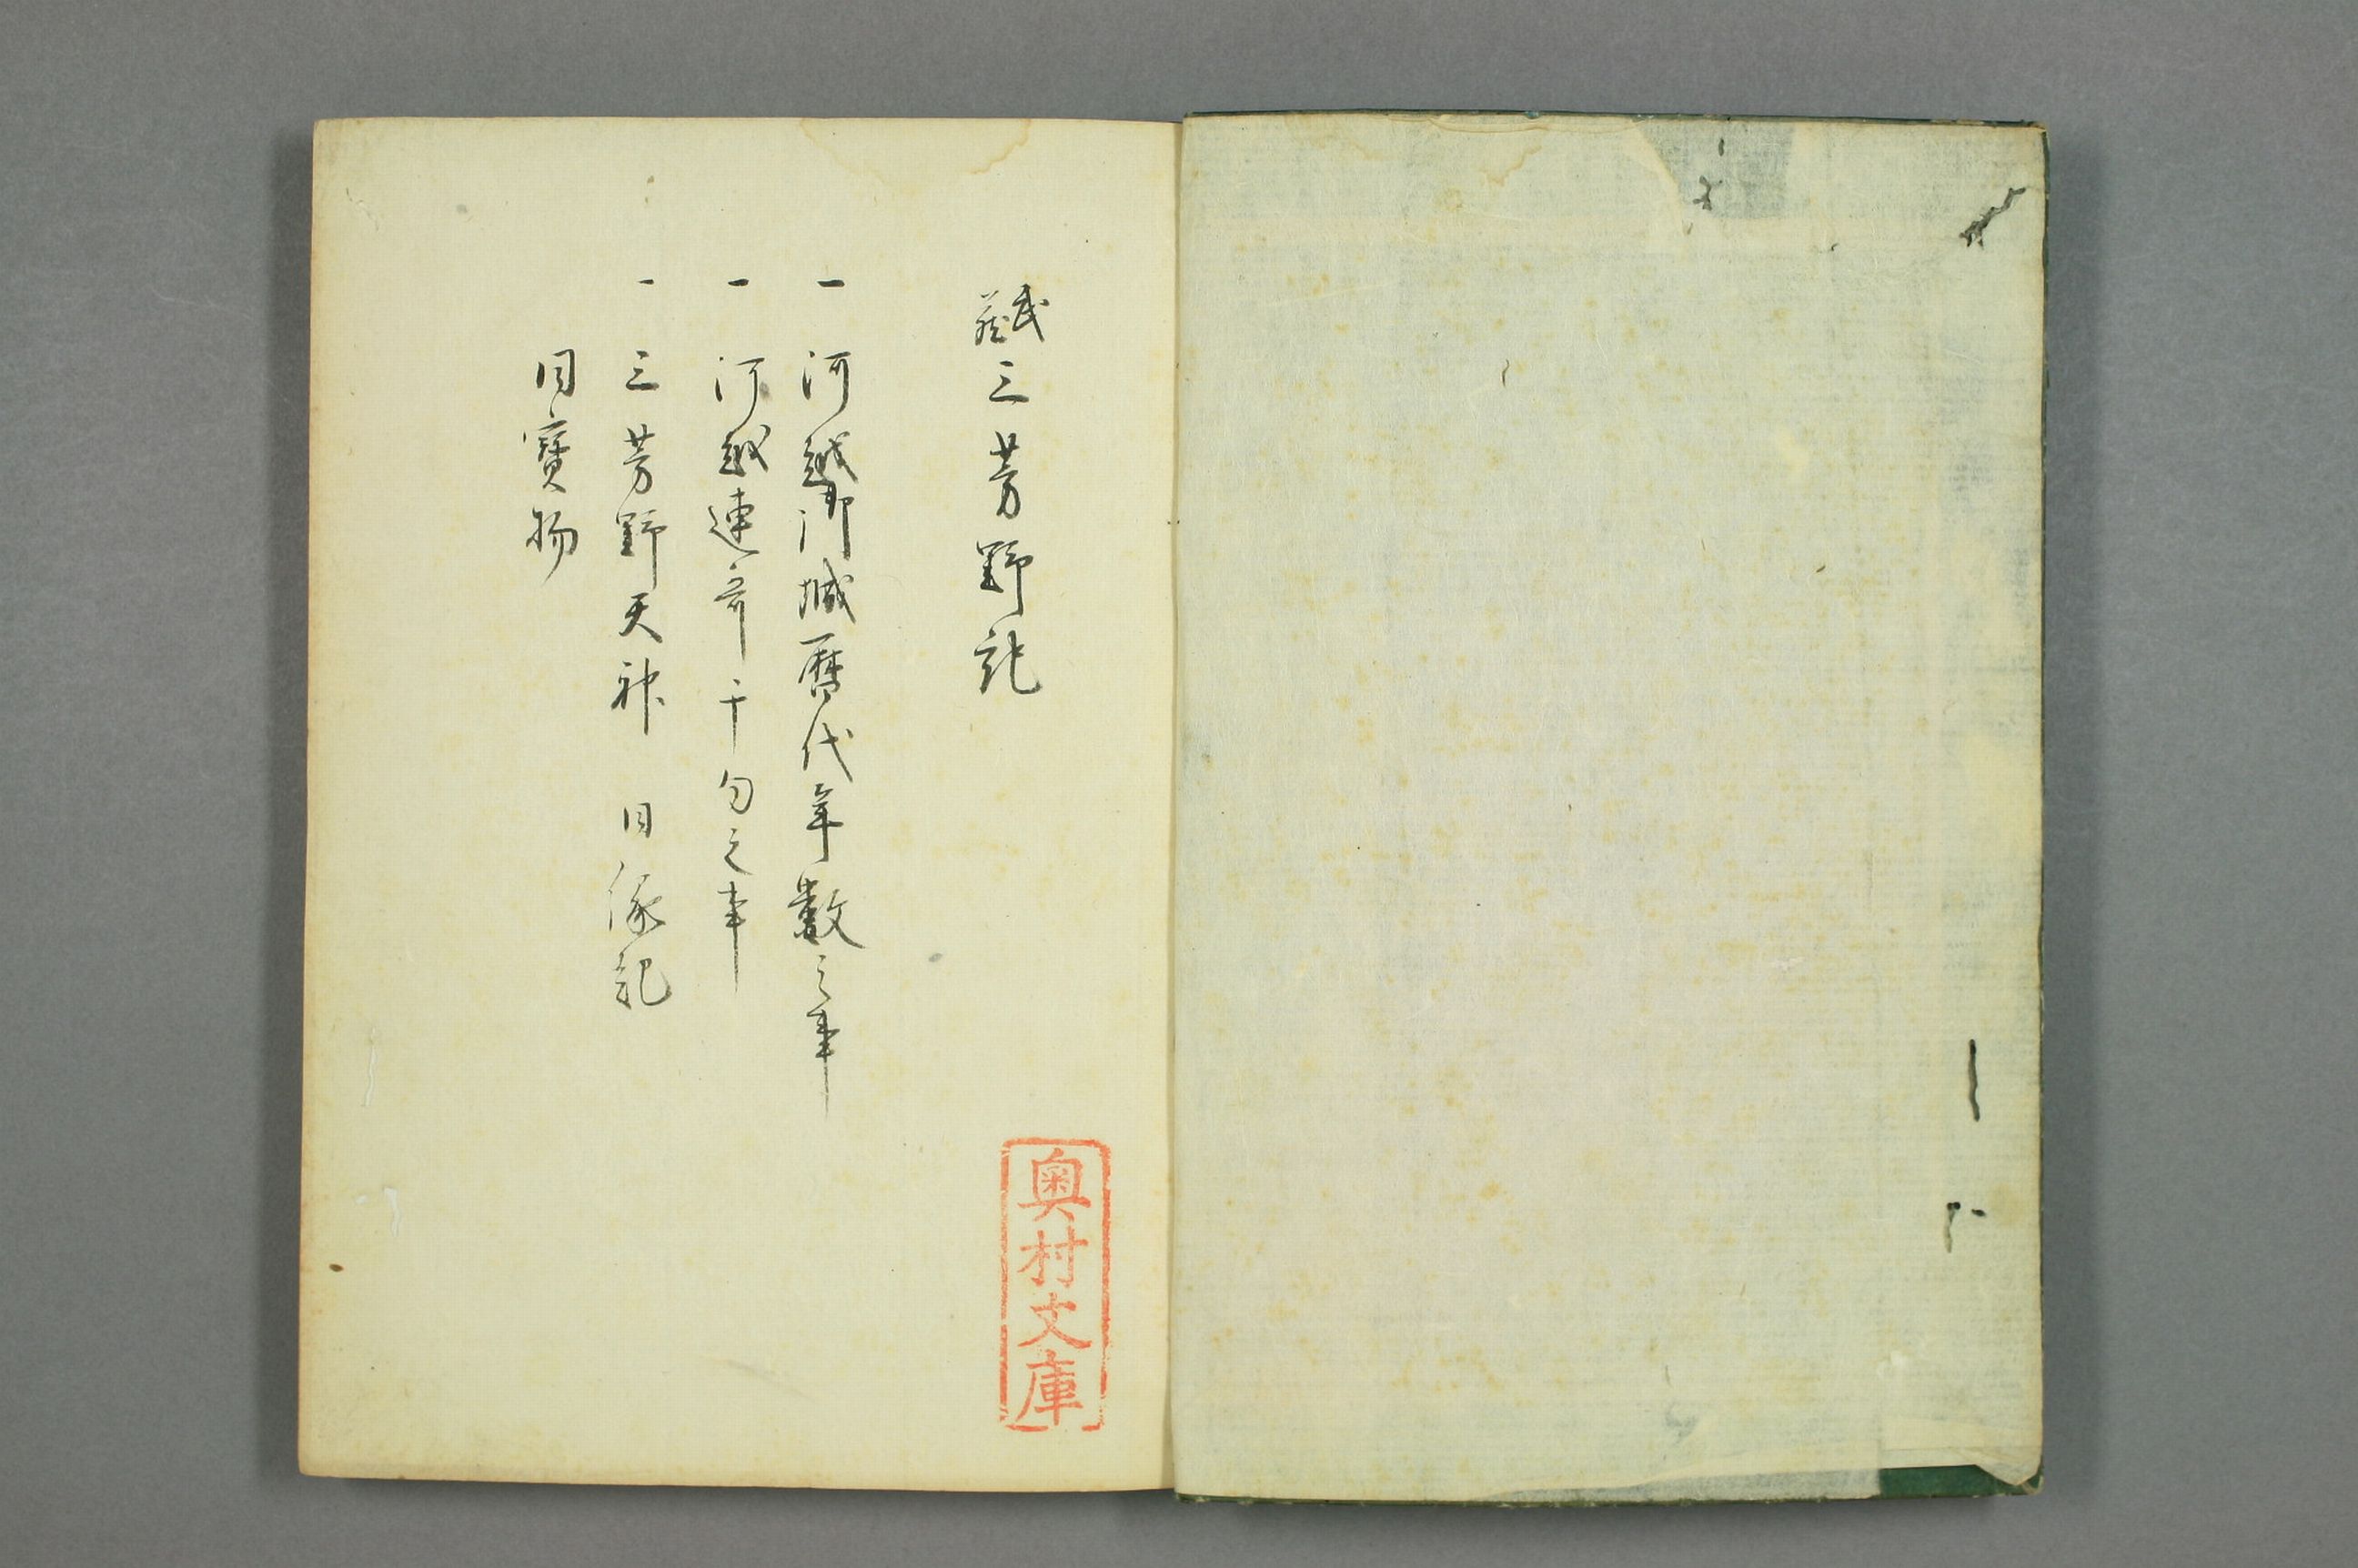 武蔵三芳野記
一 河越御城暦代年數之事
一 河越連哥千句之事
一 三芳野天神 同縁記
同寳物
奥村文庫